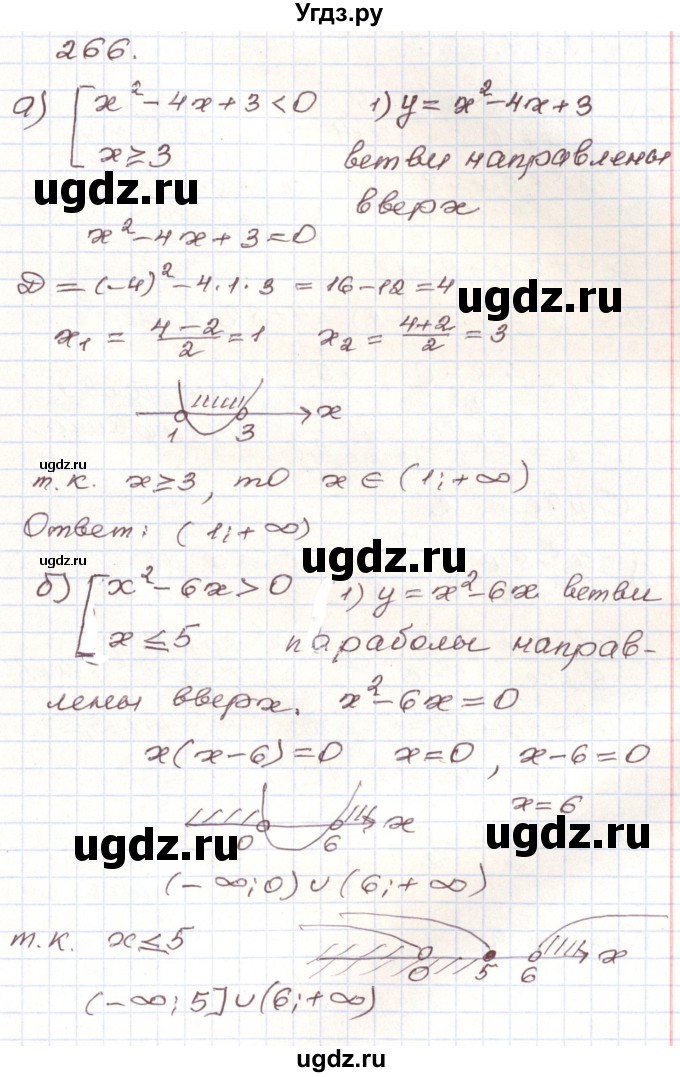 Угдз.ру
266.
а) [ x² - 4x + 3 < 0    1) y = x² - 4x + 3
x ≥ 3    ветви направлены
ugdz.ru    вверх
x² - 4x + 3 = 0
D = (-4)² - 4·1·3 = 16 - 12 = 4
ugdz.ru
x₁ = (4-2)/2 = 1    x₂ = (4+2)/2 = 3
x
1    3
ugdz.ru
т.к. x ≥ 3, то x ∈ (1; +∞)
ugdz.ru
Ответ: (1; +∞)
ugdz.ru
б) [ x² - 6x > 0    1) y = x² - 6x ветви
x ≤ 5    параболы направ-
лены вверх. x² - 6x = 0
x(x-6) = 0    x = 0, x - 6 = 0
x = 6
x
ugdz.ru    0    6    ugdz.ru
(-∞; 0) ∪ (6; +∞)
т.к. x ≤ 5    x
0    5    6
(-∞; 5] ∪ (6; +∞)
ugdz.ru